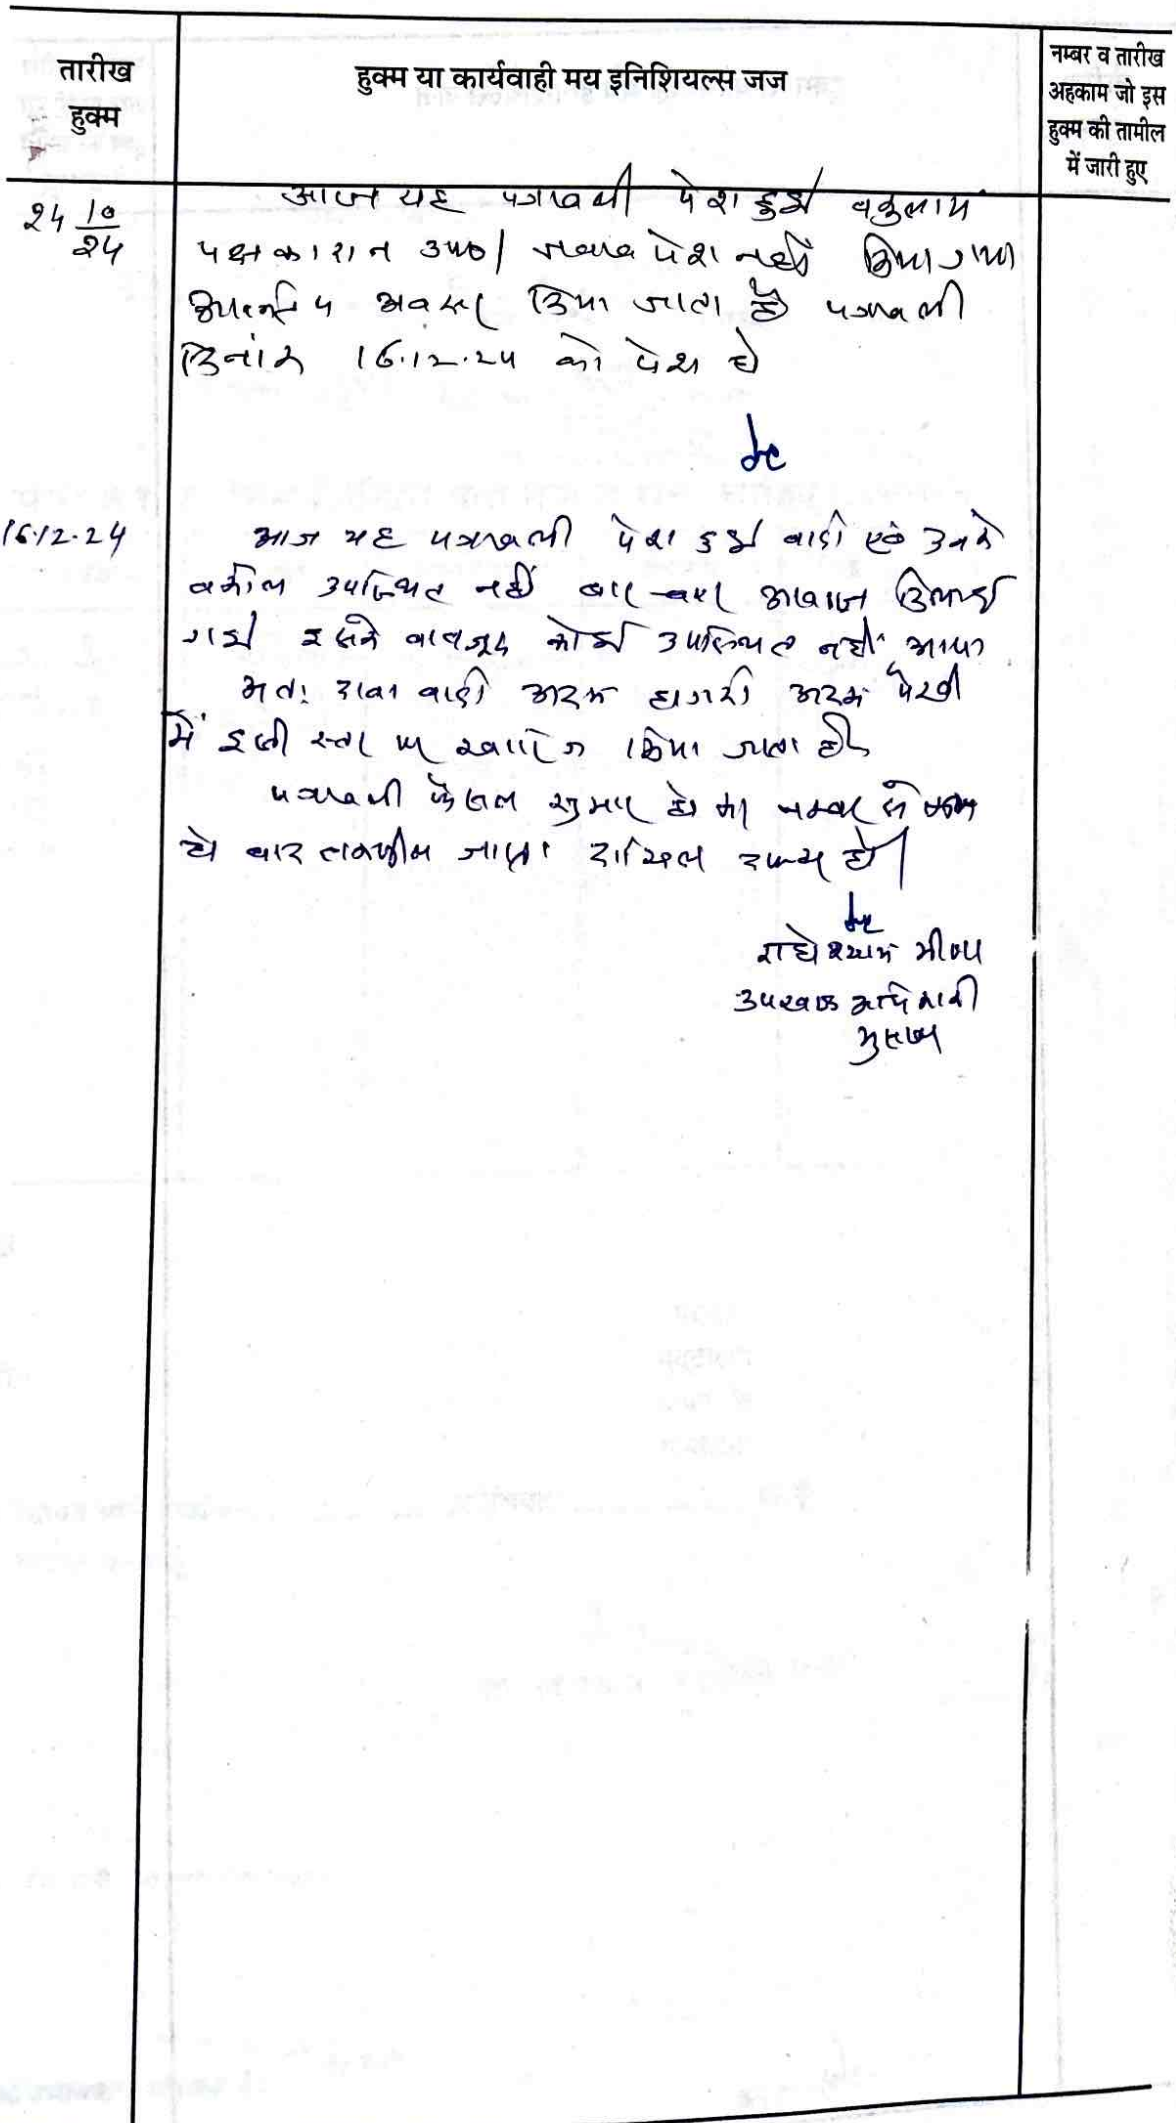 तारीख
हुक्म
हुक्म या कार्यवाही मय इनिशियल्स जज
नम्बर व तारीख
अहकाम जो इस
हुक्म की तामील
में जारी हुए
24 10/24
आज यह पत्रावली पेश हुई वकुलाय
पक्षकारान उप0/ जवाब पेश नहीं किया गया
अवसर दिया जाता है पत्रावली
दिनांक 16.12.24 को पेश हो
16.12.24
आज यह पत्रावली पेश हुई वादी एवं उनके
वकील उपस्थित नहीं बार-बार आवाज दिलाई
गई इसके बावजूद कोई उपस्थित नहीं आया
अतः दावा वादी अदम हाजरी अदम पैरवी
में इसी स्तर पर खारिज किया जाता है
पत्रावली फैसल शुमार हो कर नम्बर से कम
हो बाद तकमील जाप्ता दाखिल दफ्तर हो।
राधेश्याम मीणा
उपखण्ड अधिकारी